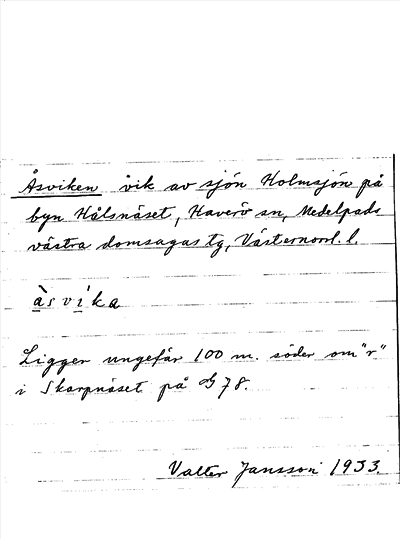 Åsviken vik av sjön Holmsjön på
byn Hålsnäset, Haverö sn, Medelpads
västra domsagas tg, Västernorrl. l.
å̀svika
Ligger ungefär 100 m. söder om "r"
i Skarpnäset på G 78.
Valter Jansson 1933.